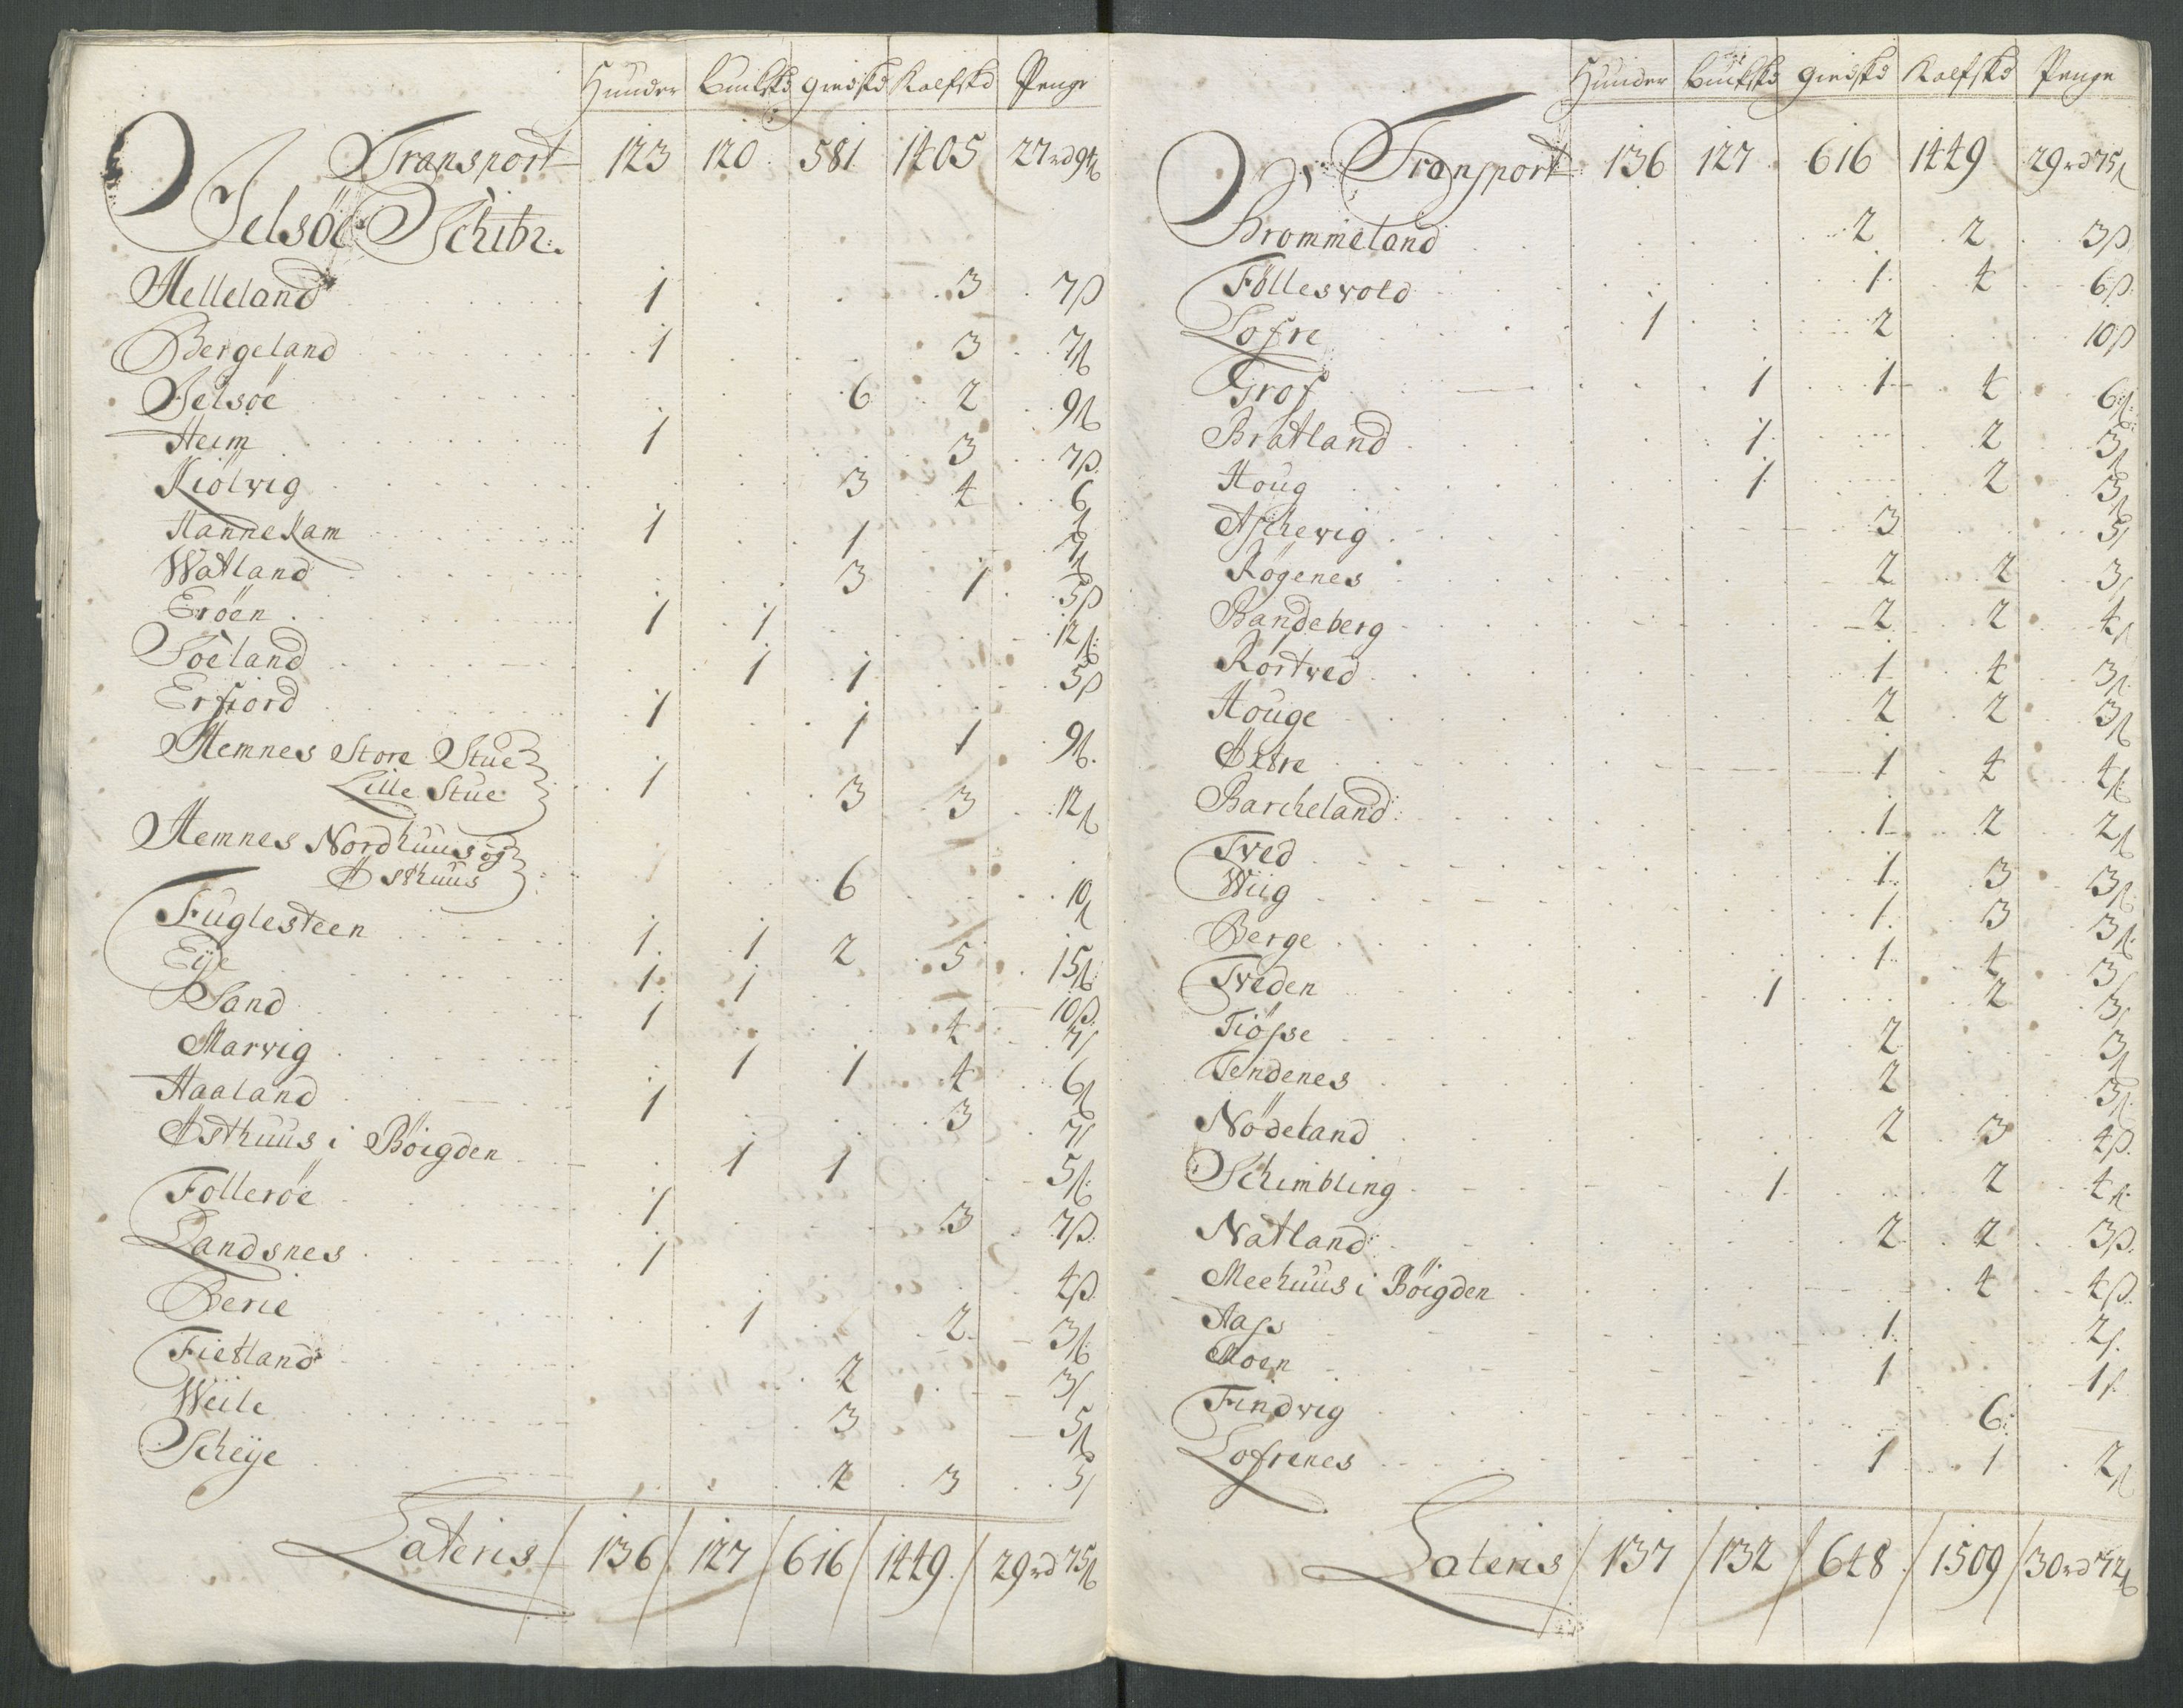 Hunder Buckskd giedskd Kalfskd Penge
Transport 123 120 581 1405 27rd 94ß
Jelsöe Schibr:
Helleland 1 3 7ß
Bergeland 1 3 7ß
Jelsöe 6 2 9ß
Heim 1 3 7ß
Kiölvig 3 4 6ß
Hannekam 1 1 7ß
Watland 3 1 5ß
Eröen 1 1 12ß
Söeland 1 1 5ß
Erfiord 1 1 1 9ß
Hemnes Store Stue
Lille Stue 1 3 3 12ß
Hemnes Nordhuus og
Østhuus 6 10ß
Fuglesteen 1 1 2 5 15ß
Eÿe 1 1 10ß
Sand 1 4 7ß
Marvig 1 1 4 6ß
Haaland 1 3 7ß
Østhuus i Böigden 1 1 5ß
Folleröe 1 3 7ß
Landsnes 1 4ß
Berie 1 2 3ß
Fietland 2 3ß
Weile 3 5ß
Scheÿe 2 3 5ß
Lateris 136 127 616 1449 29rd 75ß
Hunder Buckskd giedskd Kalfskd Penge
Transport 136 127 616 1449 29rd 75ß
Brommeland 2 2 3ß
Föllesvold 1 4 6ß
Lofre 1 2 10ß
Grof 1 1 4 6ß
Bratland 1 2 3ß
Houg 1 2 3ß
Aschevig 3 5ß
Rögenes 2 2 3ß
Bandeberg 2 2 4ß
Röstved 1 4 3ß
Houge 2 2 3ß
Øxtre 1 4 4ß
Barcheland 1 2 2ß
Tved 1 3 3ß
Wiig 1 3 3ß
Berge 1 4 3ß
Tveden 1 2 3ß
Tiösse 2 3ß
Tendenes 2 3ß
Nödeland 2 3 4ß
Schimbling 1 2 4ß
Natland 2 2 3ß
Meehuus i Böigden 4 4ß
Aass 1 2ß
Moen 1 1ß
Findvig 6
Lofrenes 1 1 2ß
Lateris 137 132 648 1509 30rd 72ß